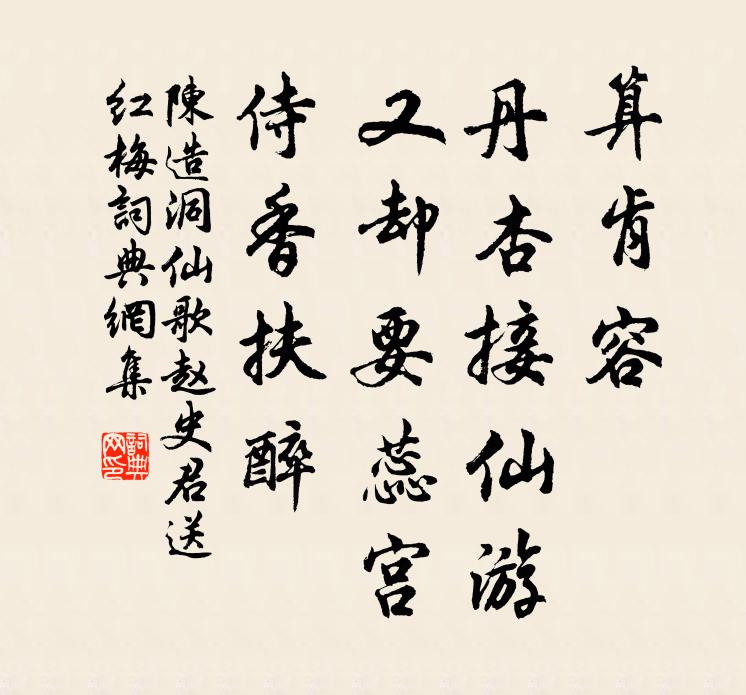 算肯容
丹杏接仙游
又却要蕊宫
侍香扶醉
陳造洞仙歌赵史君送
红梅詞典網集
詞典网印